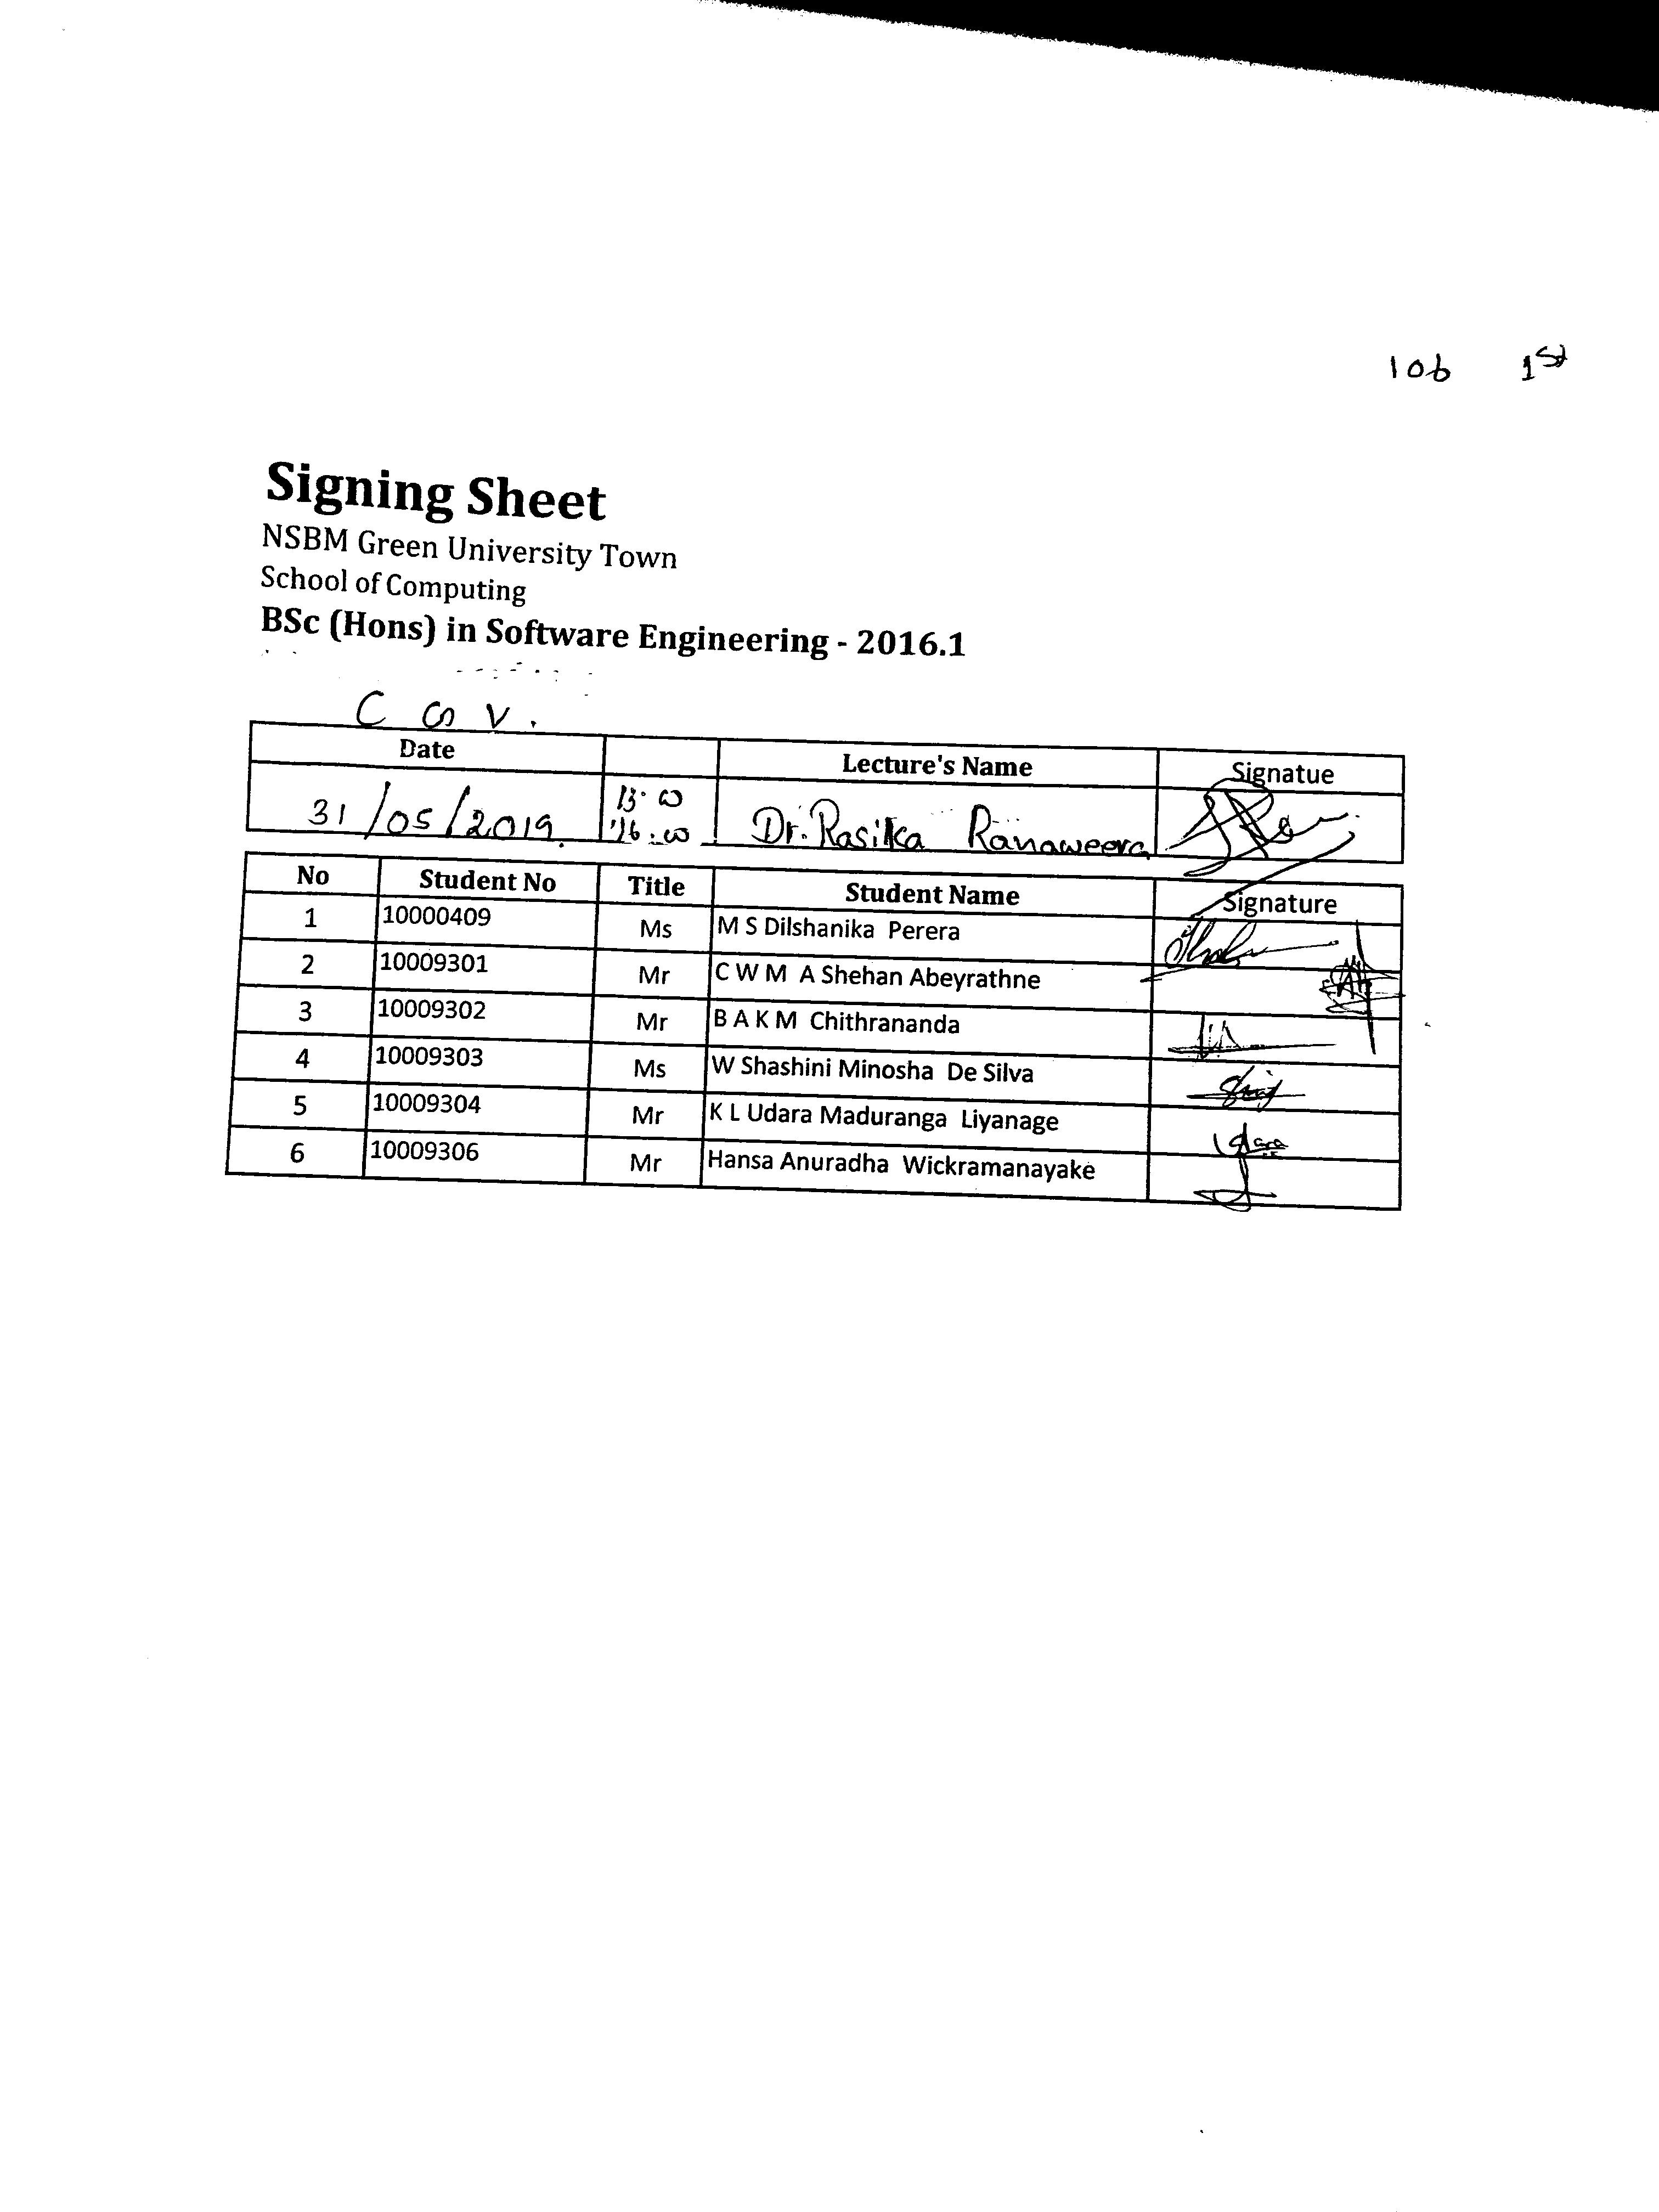 106 1st
Signing Sheet
NSBM Green University Town
School of Computing
BSc (Hons) in Software Engineering - 2016.1
C G V.
Date Lecture's Name Signatue
31/05/2019 13.00 Dr. Rasika Ranaweera
16.00
No Student No Title Student Name Signature
1 10000409 Ms M S Dilshanika Perera
2 10009301 Mr C W M A Shehan Abeyrathne
3 10009302 Mr B A K M Chithrananda
4 10009303 Ms W Shashini Minosha De Silva
5 10009304 Mr K L Udara Maduranga Liyanage
6 10009306 Mr Hansa Anuradha Wickramanayake